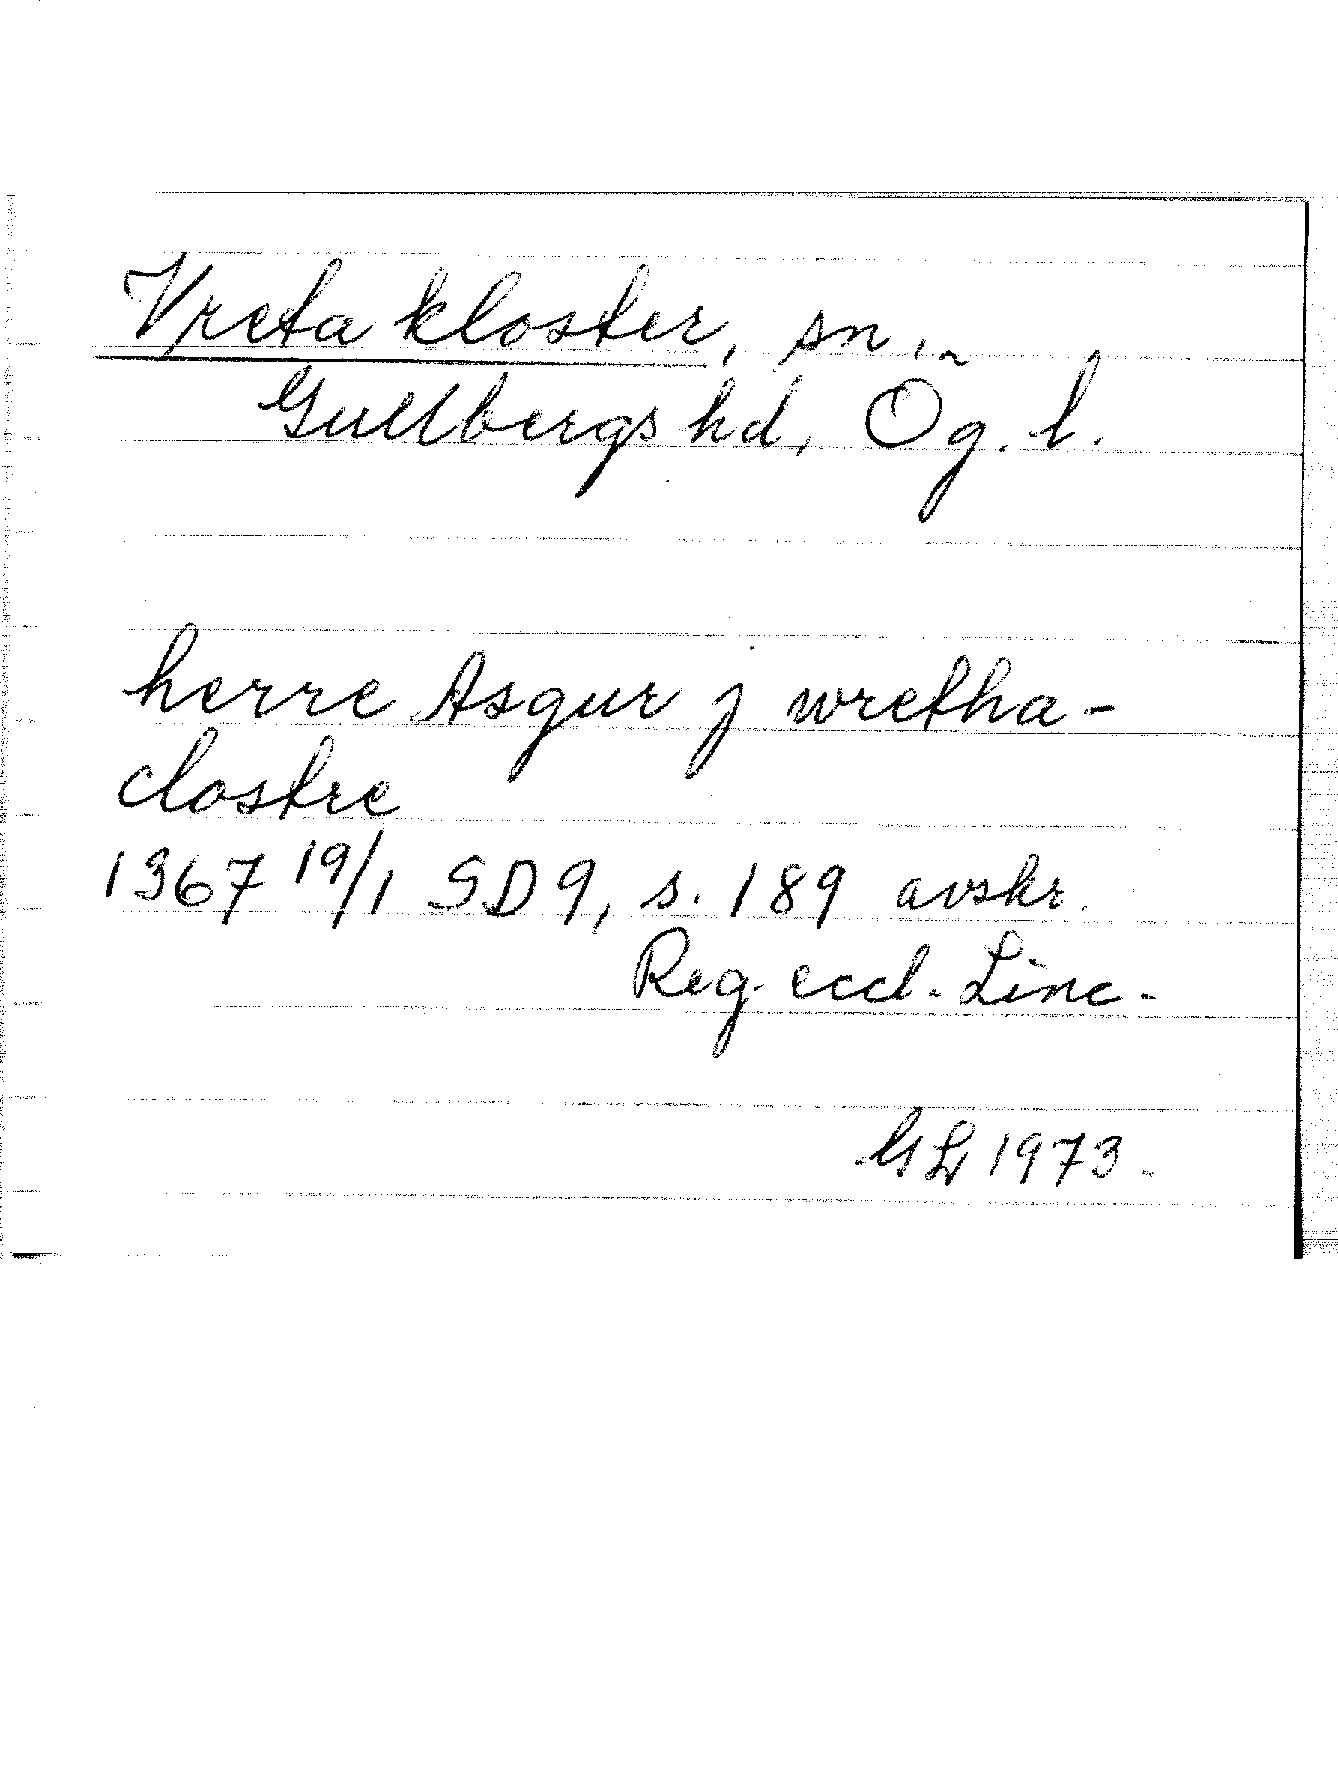 Vreta kloster, sn,
Gullbergs hd, Ög. l.
herre Asgur j wretha-
clostre
1367 19/1 SD 9, s. 189 avskr.
Reg. eccl. Linc.
GL 1973.